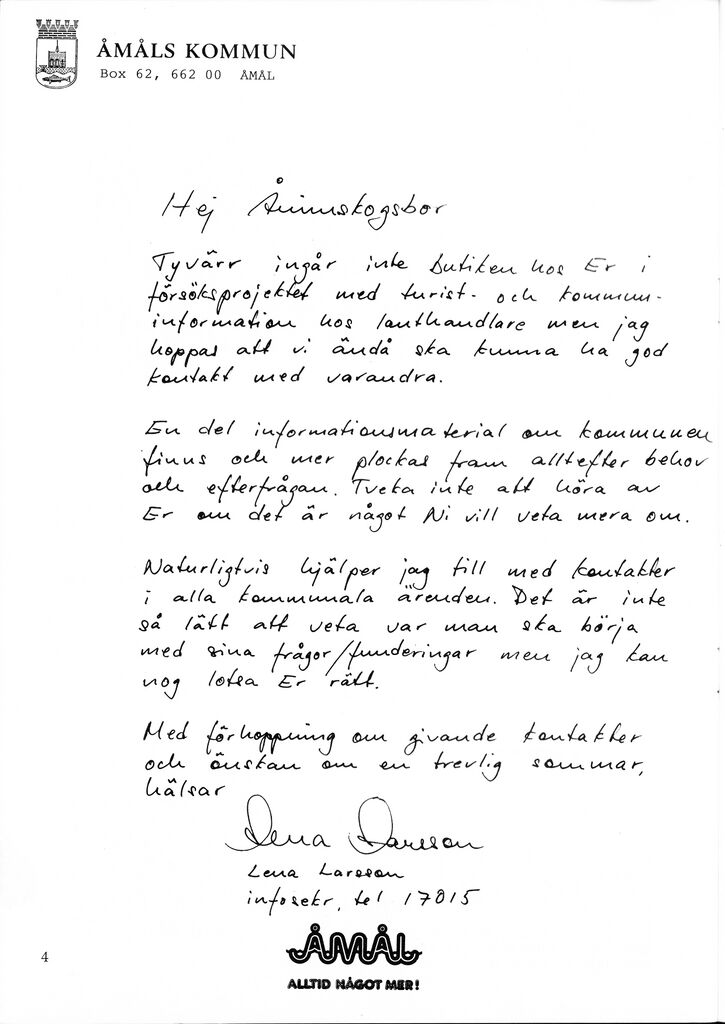 ÅMÅLS KOMMUN
Box 62, 662 00 ÅMÅL
Hej Ånimskogsbor
Tyvärr ingår inte butiken hos Er i
försöksprojektet med turist- och kommun-
information hos lanthandlare men jag
hoppas att vi ändå ska kunna ha god
kontakt med varandra.
En del informationsmaterial om kommunen
finns och mer plockas fram alltefter behov
och efterfrågan. Tveka inte att höra av
Er om det är något Ni vill veta mera om.
Naturligtvis hjälper jag till med kontakter
i alla kommunala ärenden. Det är inte
så lätt att veta var man ska börja
med sina frågor/funderingar men jag kan
nog lotsa Er rätt.
Med förhoppning om givande kontakter
och önskan om en trevlig sommar,
hälsar
Lena Larsson
Lena Larsson
infosekr, tel 17015
4
ÅMÅL
ALLTID NÅGOT MER!